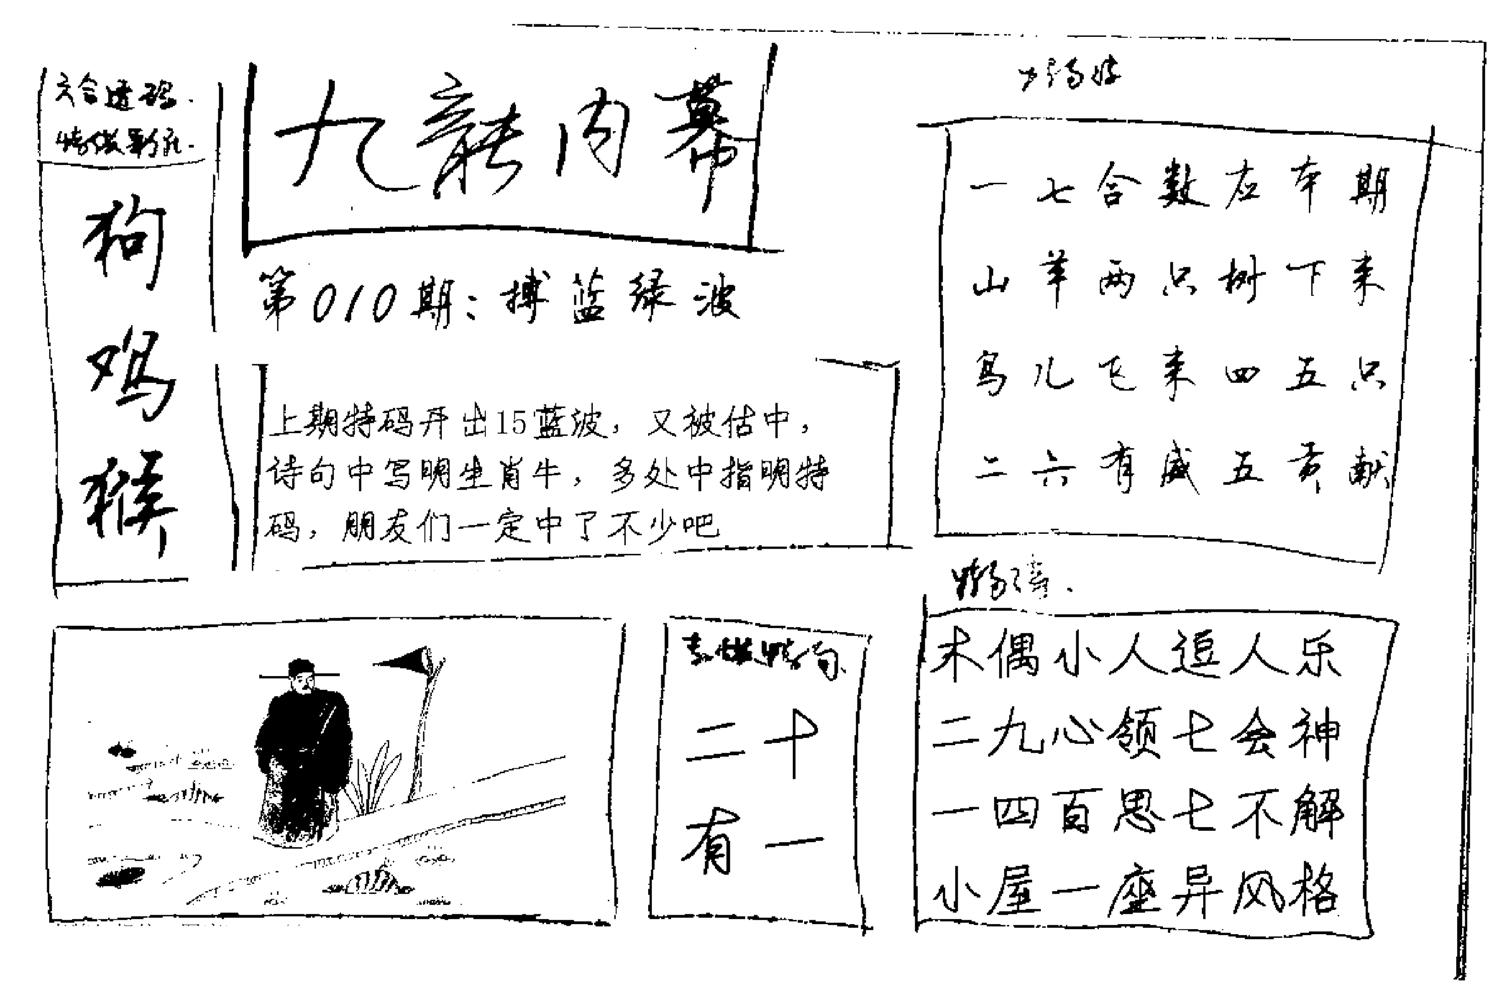 六合透码
狗
鸡
猴
九龙内幕
第010期：搏蓝绿波
上期特码开出15蓝波，又被估中，
诗句中写明生肖牛，多处中指明特
码，朋友们一定中了不少吧
一七合数应本期
山羊两只树下来
鸟儿飞来四五只
二六有威五贡献
二十
有一
木偶小人逗人乐
二九心领七会神
一四百思七不解
小屋一座异风格